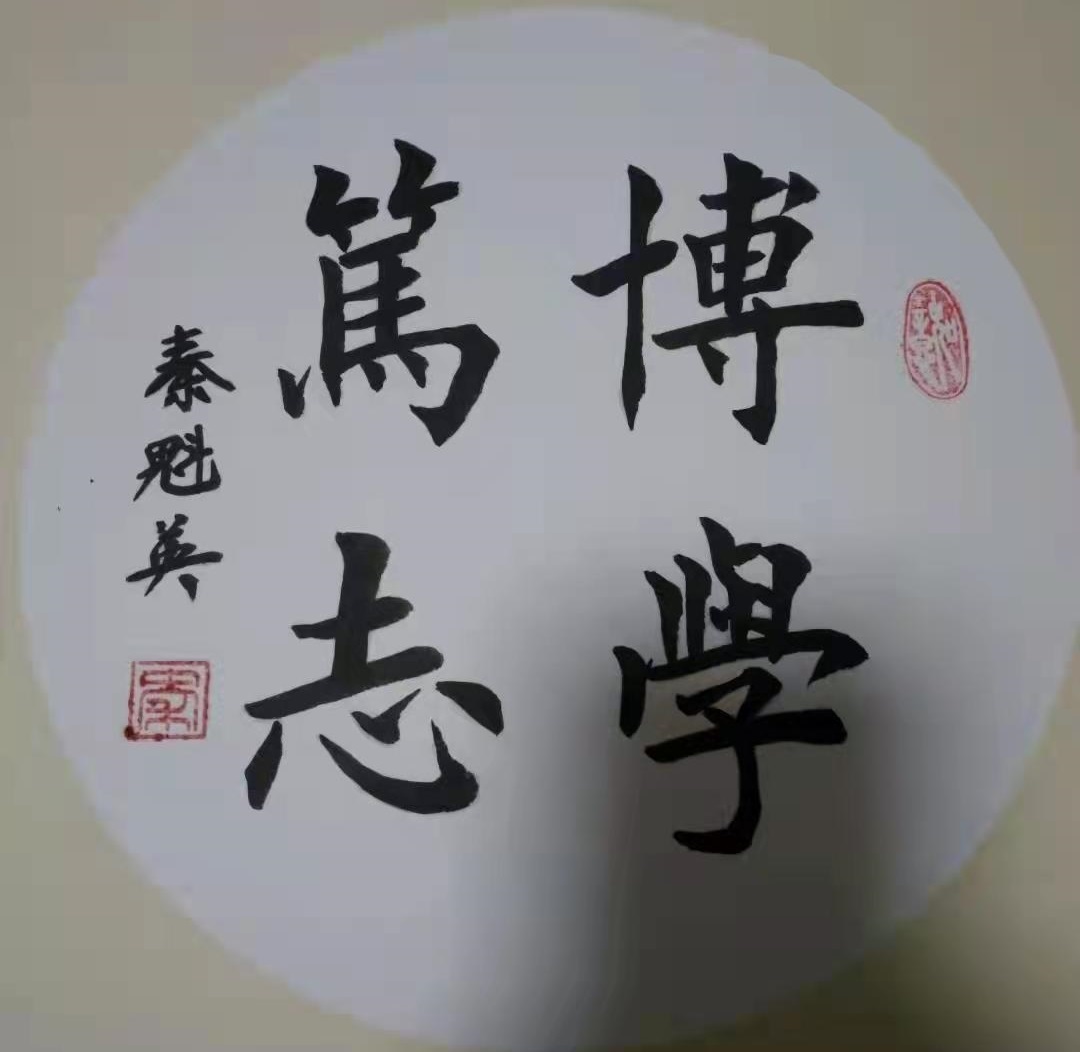 博學
篤志
秦魁英